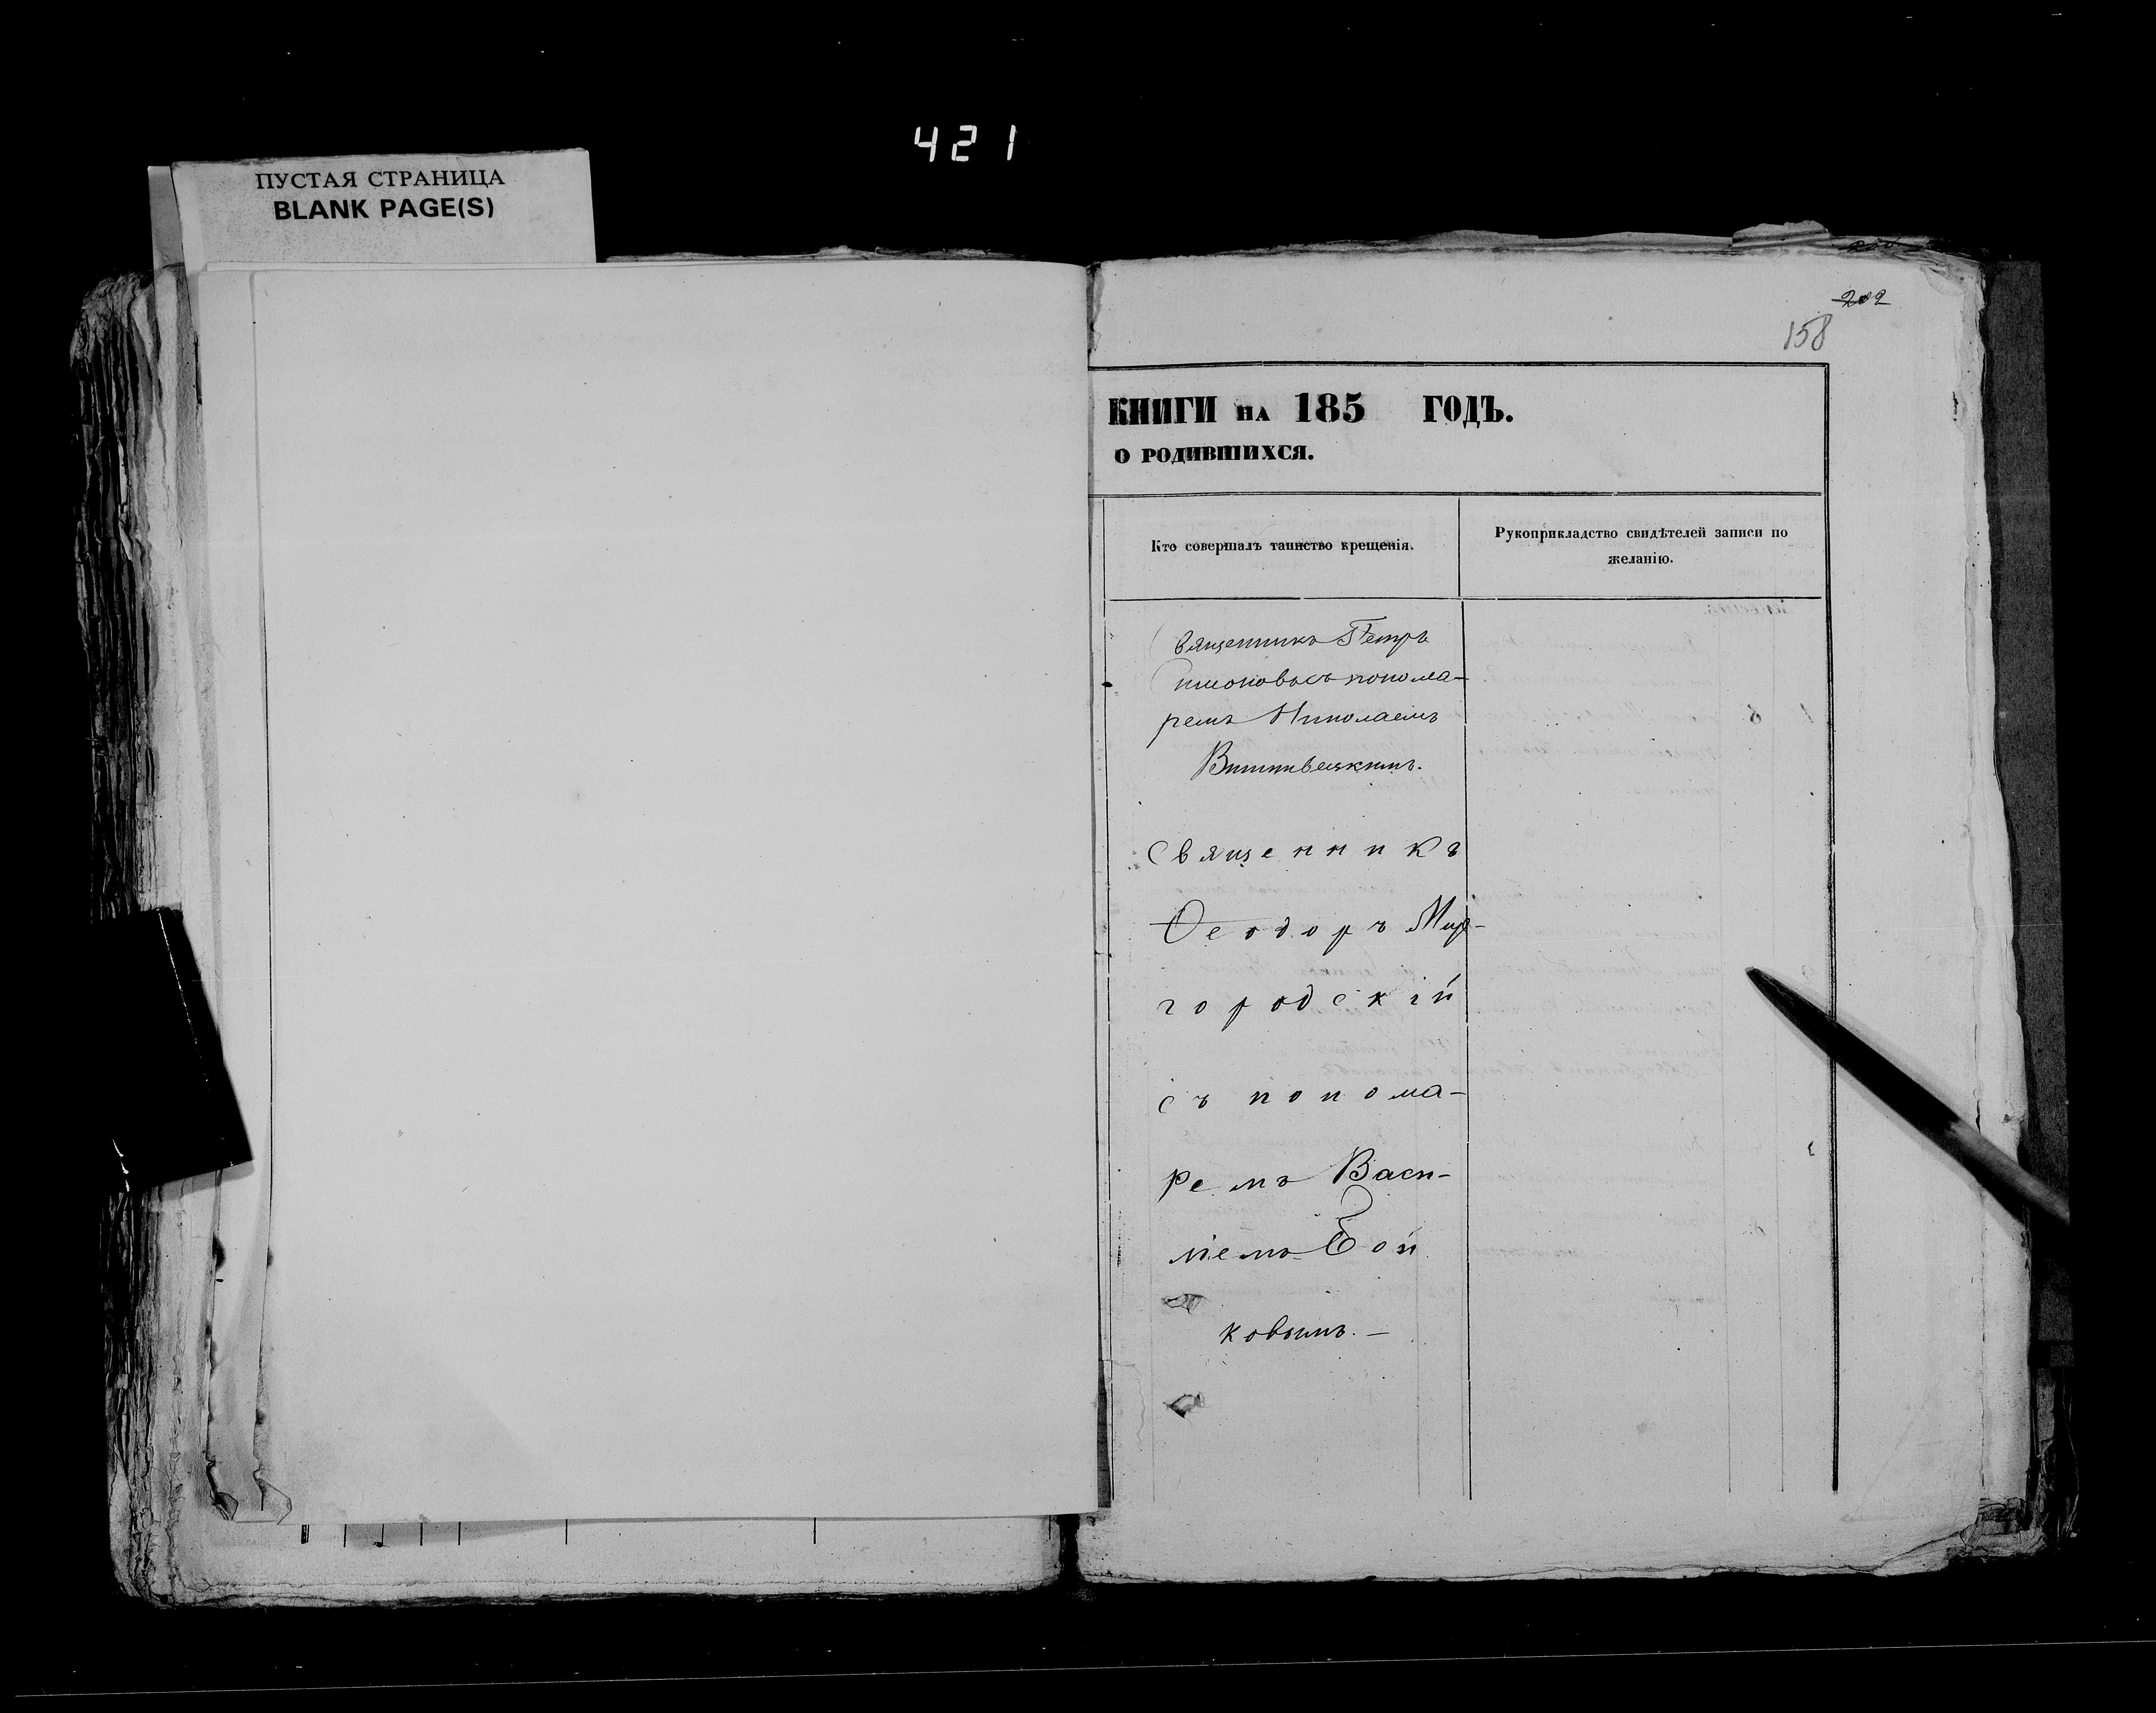 421
ПУСТАЯ СТРАНИЦА
BLANK PAGE(S)
202
158
КНИГИ НА 185 ГОДЪ.
О РОДИВШИХСЯ.
Кто совершалъ таинство крещенія.
Рукоприкладство свидѣтелей записи по
желанію.
Священникъ Петръ
Симоновъ съ понома-
ремъ Николаемъ
Священникъ
Ѳеодоръ Мир-
городскій
съ понома-
ремъ Васи-
ліемъ Бой
ковымъ. —